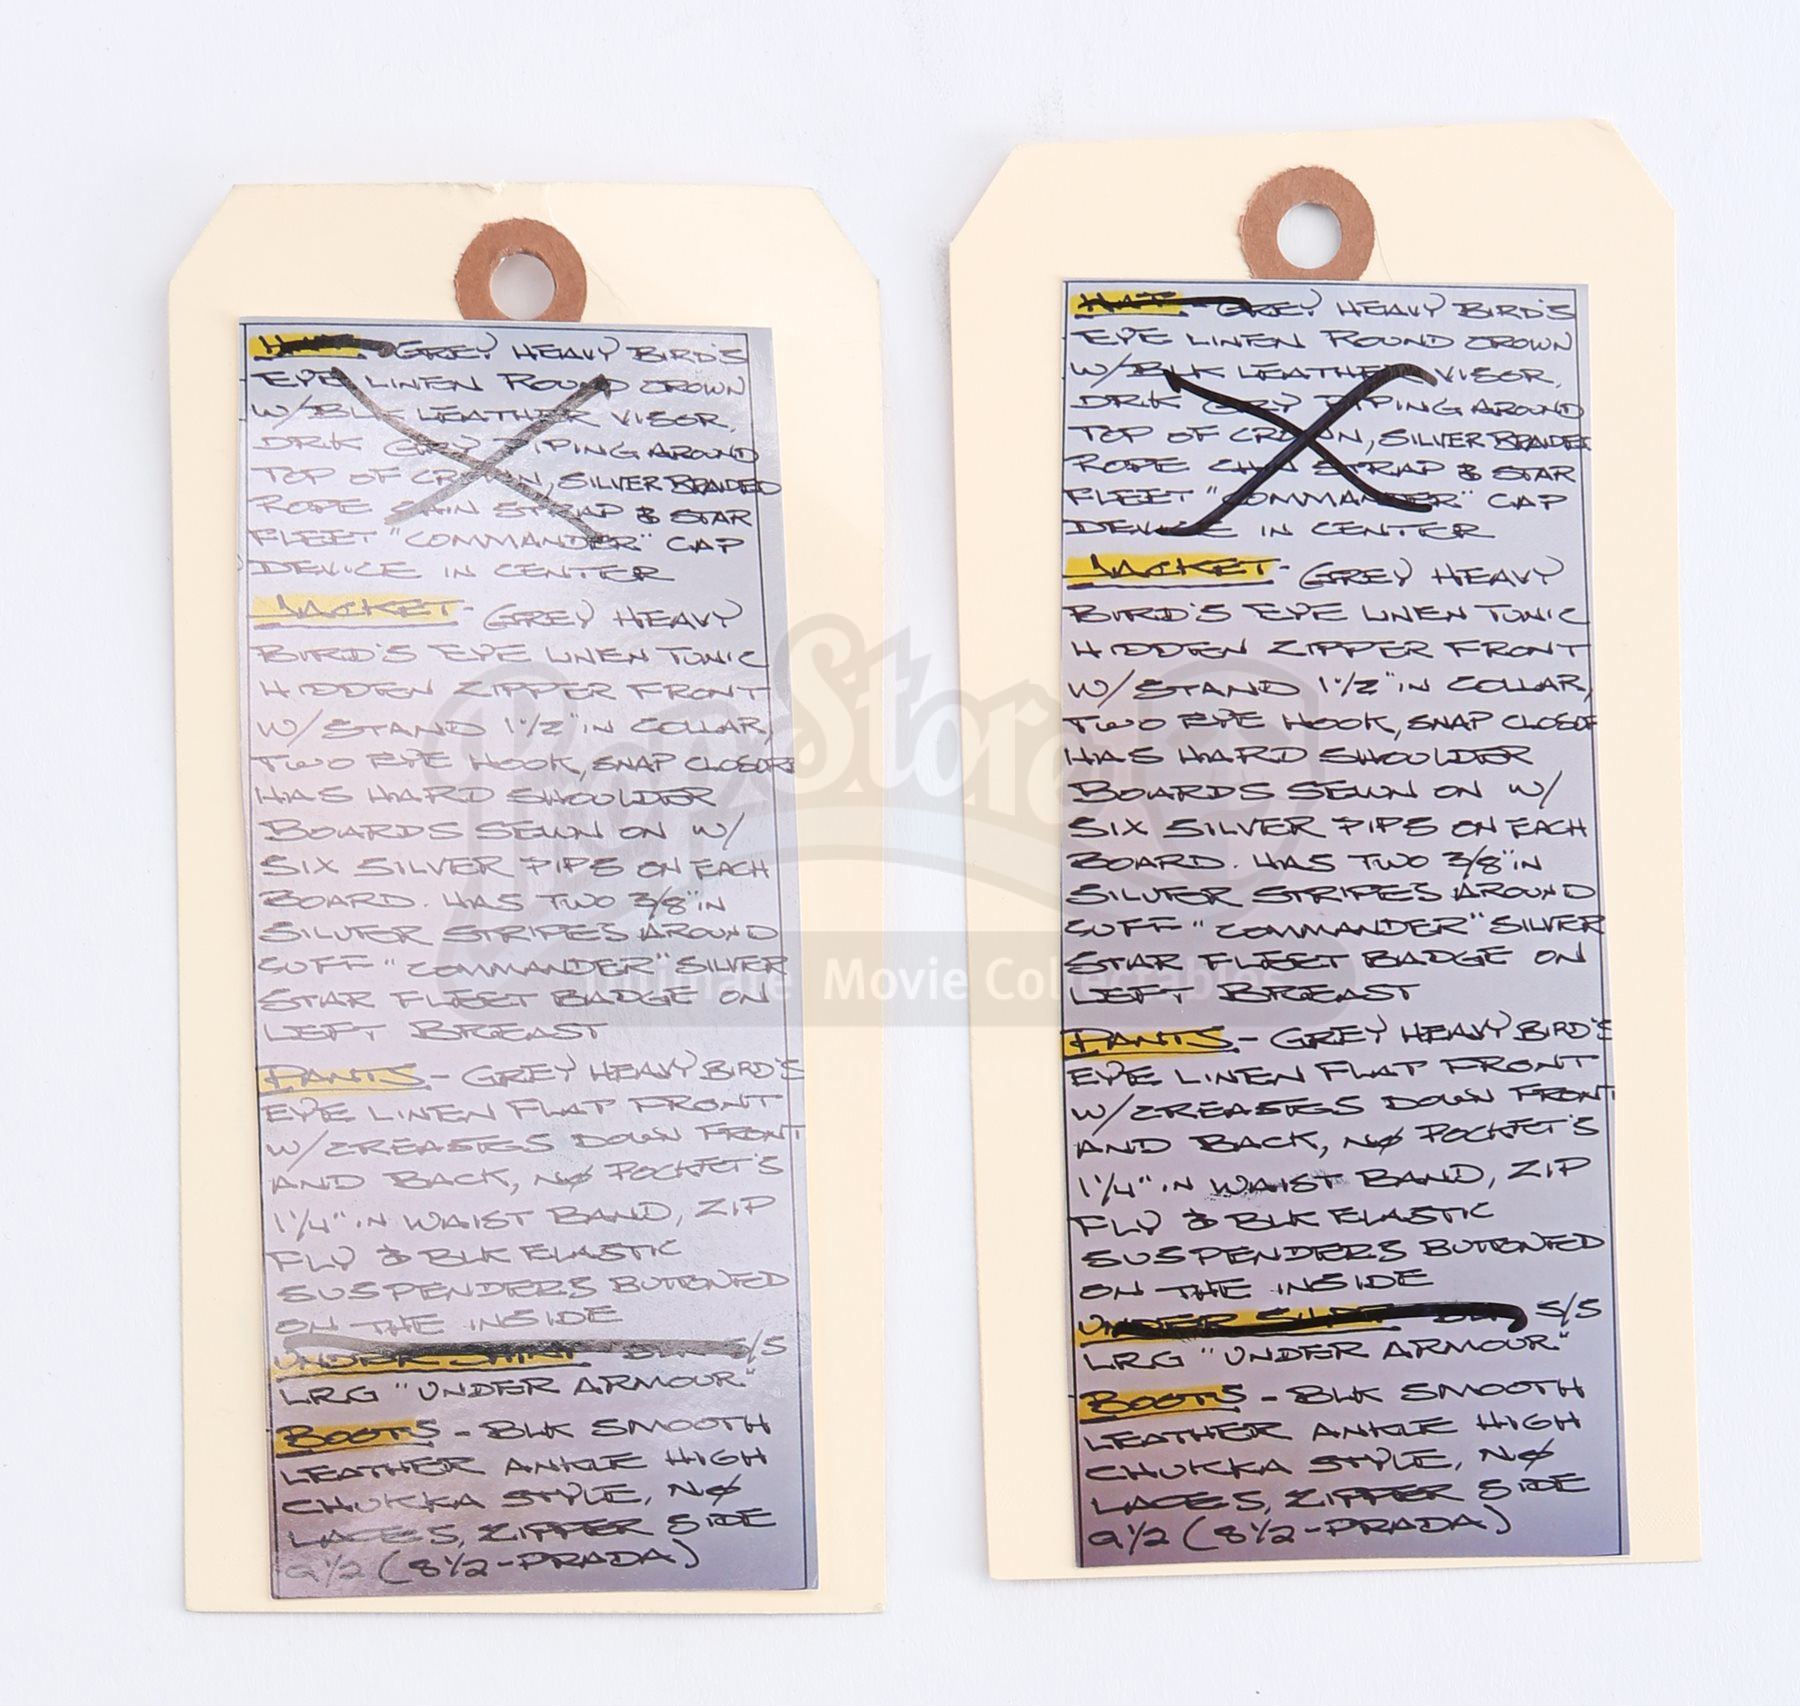 HAT - GREY HEAVY BIRD'S
EYE LINEN ROUND CROWN
W/BLK LEATHER VISOR,
DRK GRY PIPING AROUND
TOP OF CROWN, SILVER BRAIDED
ROPE CHIN STRAP & STAR
FLEET "COMMANDER" CAP
DEVICE IN CENTER
JACKET - GREY HEAVY
BIRD'S EYE LINEN TUNIC
HIDDEN ZIPPER FRONT
W/STAND 1 1/2" IN COLLAR,
TWO EYE HOOK, SNAP CLOSURE
HAS HARD SHOULDER
BOARDS SEWN ON W/
SIX SILVER PIPS ON EACH
BOARD. HAS TWO 3/8" IN
SILVER STRIPES AROUND
CUFF "COMMANDER" SILVER
STAR FLEET BADGE ON
LEFT BREAST
PANTS - GREY HEAVY BIRD'S
EYE LINEN FLAT FRONT
W/CREASES DOWN FRONT
AND BACK, NØ POCKET'S
1 1/4" IN WAIST BAND, ZIP
FLY & BLK ELASTIC
SUSPENDERS BUTTONED
ON THE INSIDE
UNDER SHIRT - BLK S/S
LRG "UNDER ARMOUR"
BOOTS - BLK SMOOTH
LEATHER ANKLE HIGH
CHUKKA STYLE, NØ
LACES, ZIPPER SIDE
9 1/2 (8 1/2 - PRADA)
HAT - GREY HEAVY BIRD'S
EYE LINEN ROUND CROWN
W/BLK LEATHER VISOR,
DRK GRY PIPING AROUND
TOP OF CROWN, SILVER BRAIDED
ROPE CHIN STRAP & STAR
FLEET "COMMANDER" CAP
DEVICE IN CENTER
JACKET - GREY HEAVY
BIRD'S EYE LINEN TUNIC
HIDDEN ZIPPER FRONT
W/STAND 1 1/2" IN COLLAR,
TWO EYE HOOK, SNAP CLOSUR
HAS HARD SHOULDER
BOARDS SEWN ON W/
SIX SILVER PIPS ON EACH
BOARD. HAS TWO 3/8" IN
SILVER STRIPES AROUND
CUFF "COMMANDER" SILVER
STAR FLEET BADGE ON
LEFT BREAST
PANTS - GREY HEAVY BIRD'S
EYE LINEN FLAT FRONT
W/CREASES DOWN FRONT
AND BACK, NØ POCKET'S
1 1/4" IN WAIST BAND, ZIP
FLY & BLK ELASTIC
SUSPENDERS BUTTONED
ON THE INSIDE
UNDER SHIRT - BLK S/S
LRG "UNDER ARMOUR"
BOOTS - BLK SMOOTH
LEATHER ANKLE HIGH
CHUKKA STYLE, NØ
LACES, ZIPPER SIDE
9 1/2 (8 1/2 - PRADA)
Prop Store
Ultimate Movie Collectables